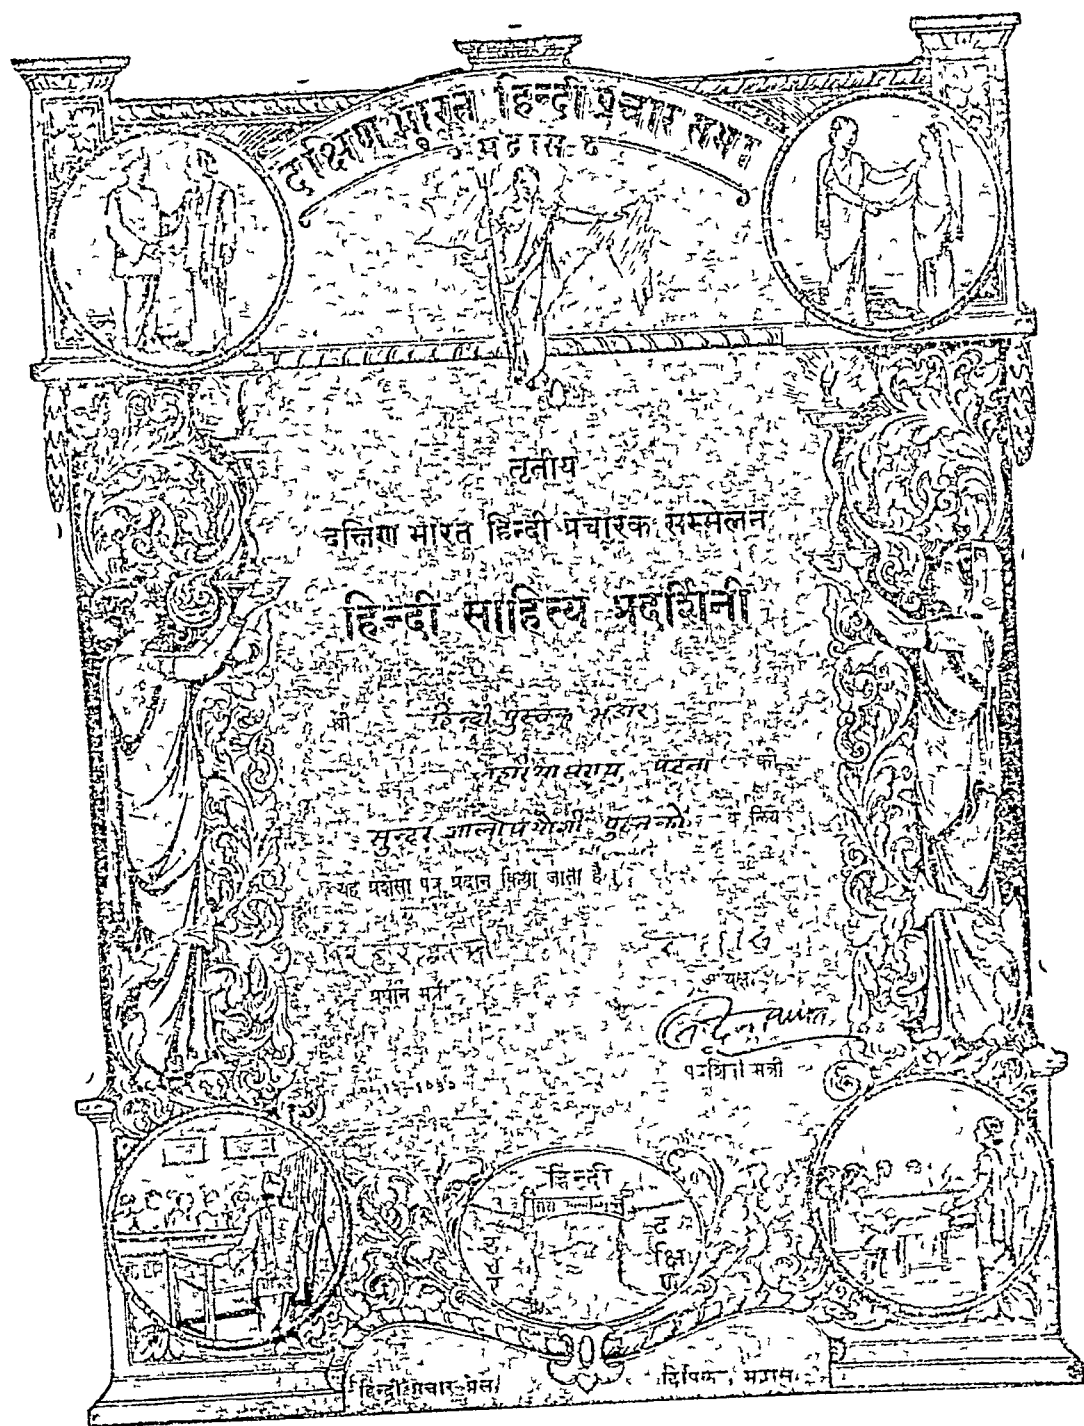 दक्षिण भारत हिन्दी प्रचार सभा
मद्रास
तृतीय
दक्षिण भारत हिन्दी प्रचारक सम्मेलन
हिन्दी साहित्य प्रदर्शिनी
श्री हिन्दी पुस्तक भंडार
लहेरियासराय, पटना को
सुन्दर बालोपयोगी पुस्तकों के लिये
यह प्रशंसा पत्र प्रदान किया जाता है।
प्रधान मंत्री
अध्यक्ष
प्रदर्शिनी मंत्री
हिन्दी
दक्षिण
हिन्दी प्रचार प्रेस, मद्रास